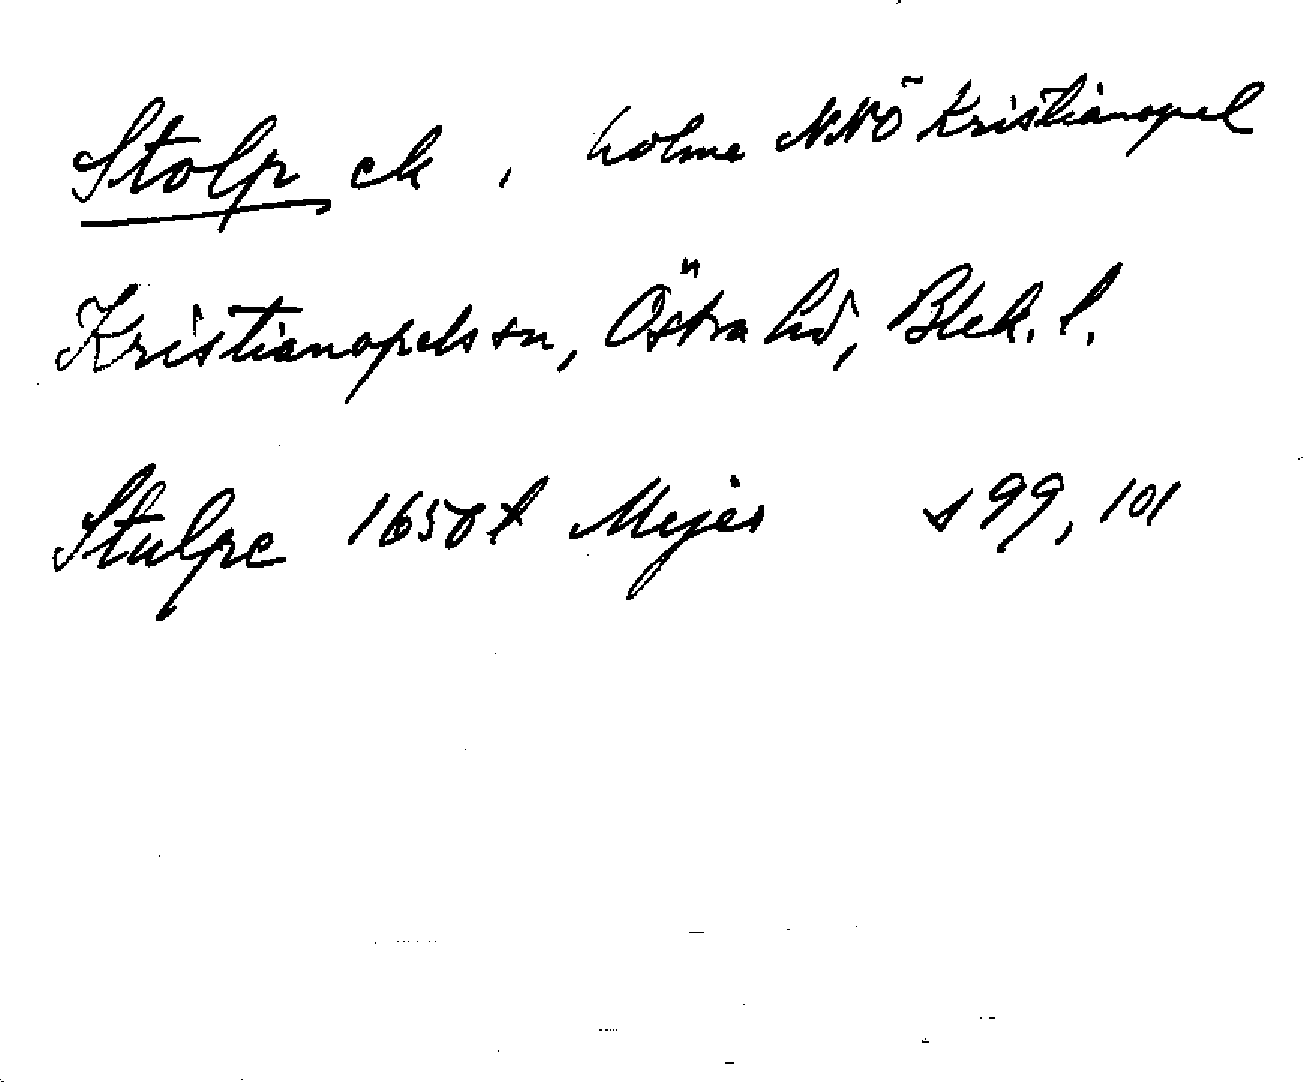 Stolp ek , holme NNÖ Kristianopel
Kristianopels sn, Östra hd, Blek. l.
Stulpe 1650 t Mejer s 99, 101